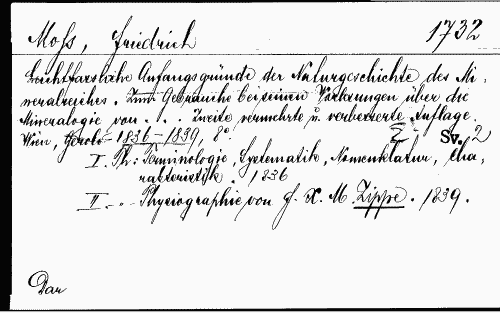 Mohs, Friedrich 1732
Leichtfassliche Anfangsgründe der Naturgeschichte des Mi-
neralreiches. Zum Gebrauche bei seinen Vorlesungen über die
Mineralogie von . . . Zweite vermehrte u. verbesserte Auflage.
Wien, Gerold 1836-1839, 8° Σ Sv. 2
I. Th: Terminologie, Systematik, Nomenklatur, Cha-
rakteristik. 1836
II. - . - Physiographie von F. X. M. Zippe. 1839.
Dar